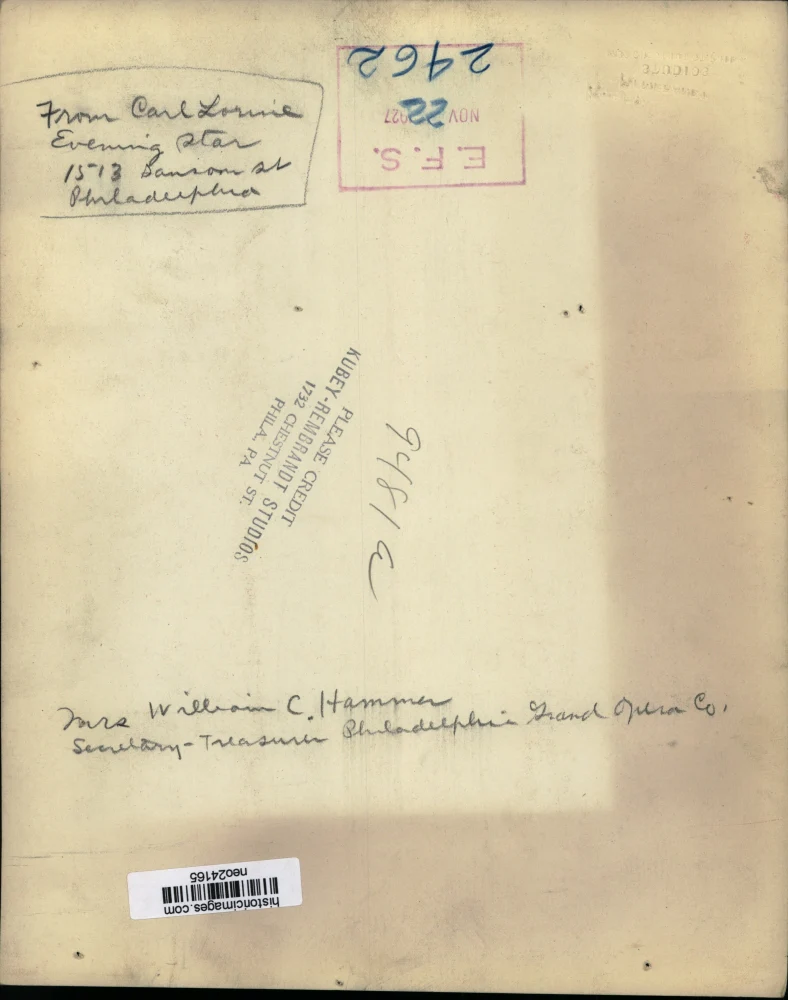 From Carl Lorine
Evening Star
1513 Sansom st
Philadelphia
2462
NOV 22 1927
E.F.S.
PLEASE CREDIT
KUBEY-REMBRANDT STUDIOS
1732 CHESTNUT ST.
PHILA., PA.
9481 a
Mrs William C. Hammer
Secretary-Treasurer Philadelphia Grand Opera Co.
historicimages.com
neo24165